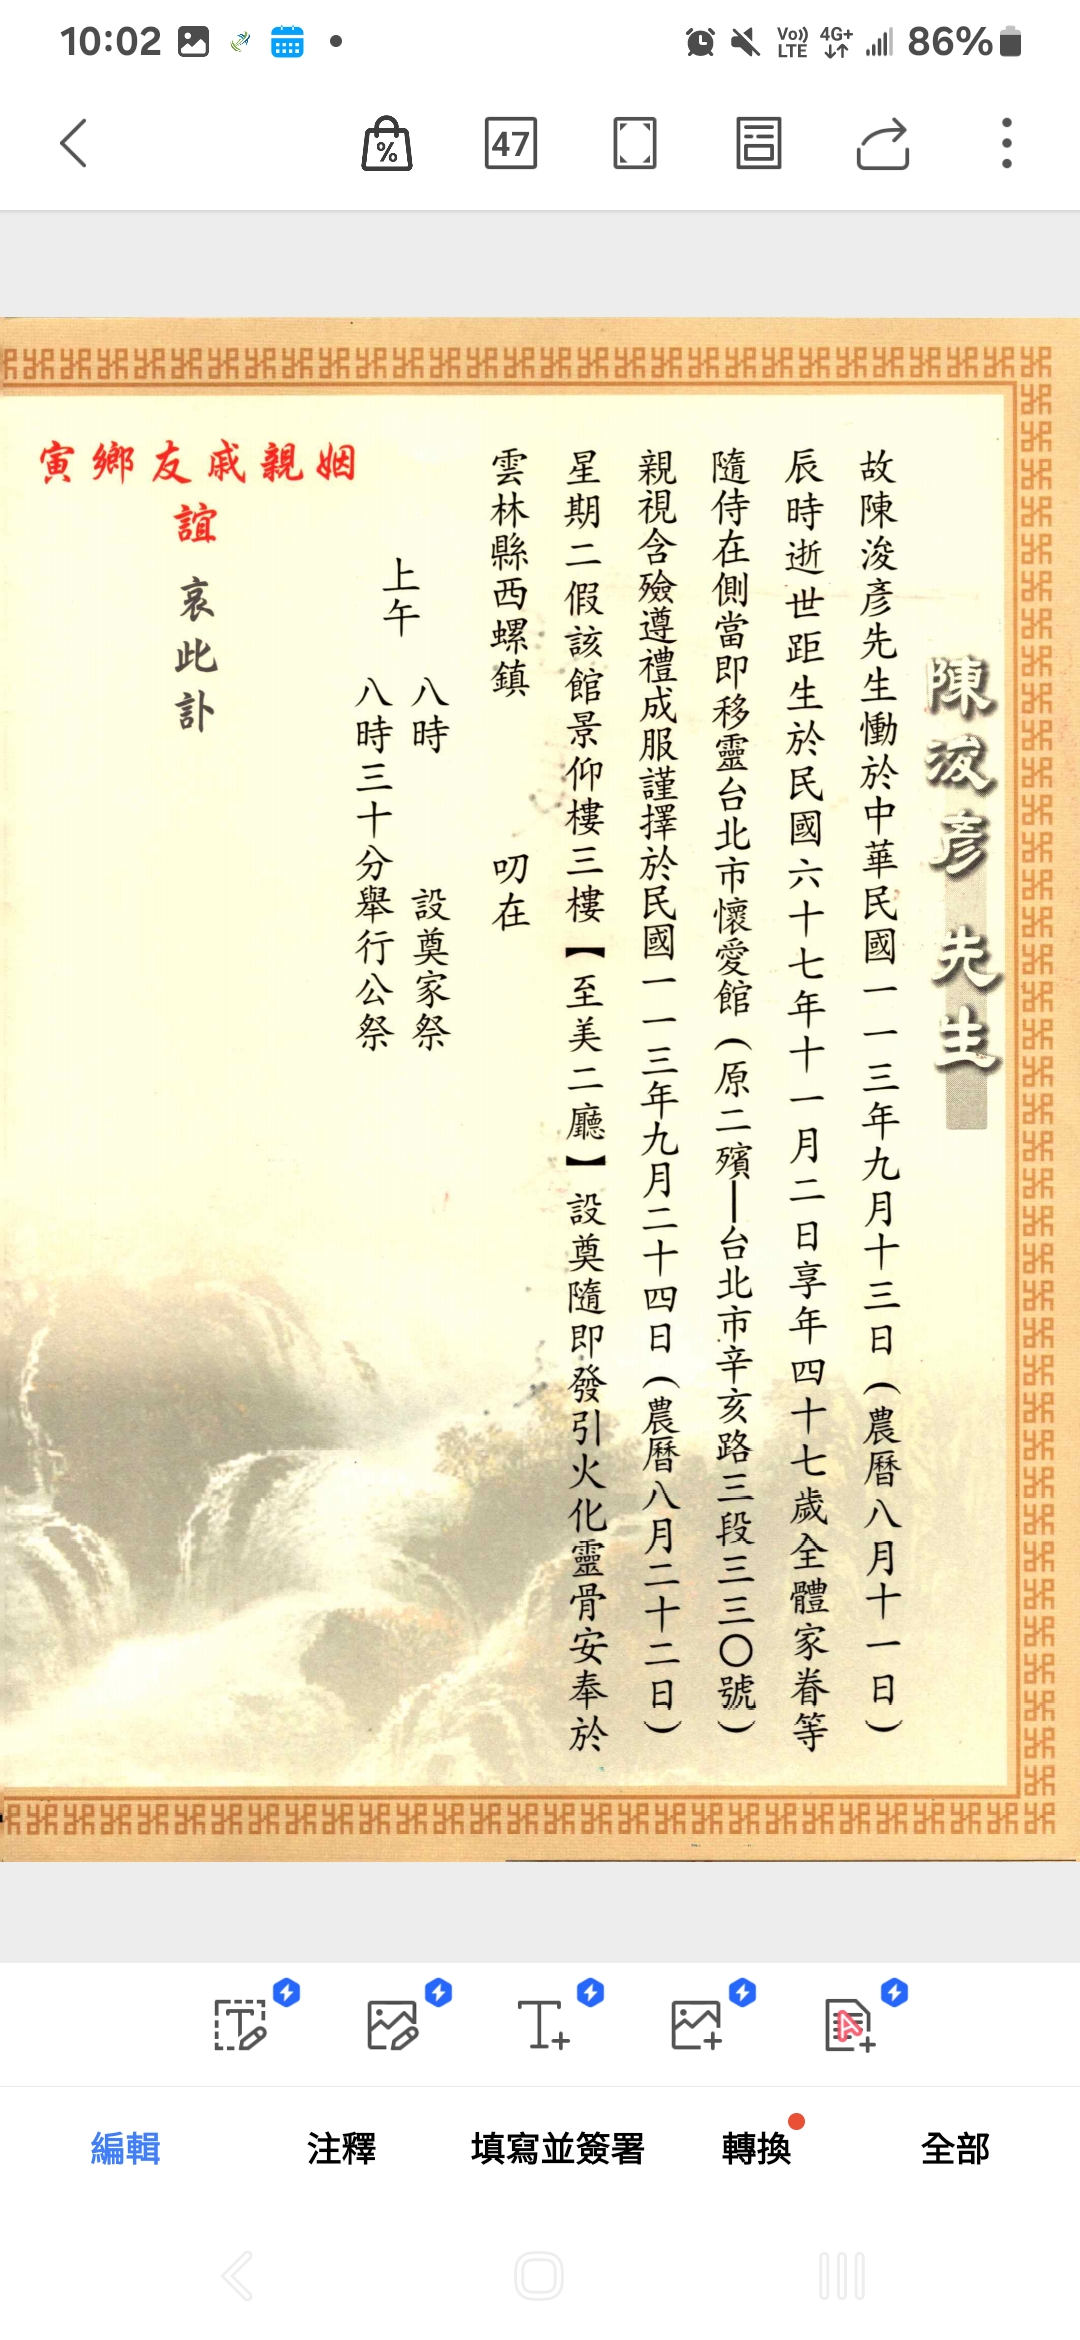 10:02
Vo)) LTE 4G+ 86%
%
47
陳浚彥先生
故陳浚彥先生慟於中華民國一一三年九月十三日（農曆八月十一日）
辰時逝世距生於民國六十七年十一月二日享年四十七歲全體家眷等
隨侍在側當即移靈台北市懷愛館（原二殯—台北市辛亥路三段三三〇號）
親視含殮遵禮成服謹擇於民國一一三年九月二十四日（農曆八月二十二日）
星期二假該館景仰樓三樓【至美二廳】設奠隨即發引火化靈骨安奉於
雲林縣西螺鎮　　叨在
上午
八時　　設奠家祭
八時三十分舉行公祭
姻親戚友鄉寅
誼
哀此訃
編輯
注釋
填寫並簽署
轉換
全部